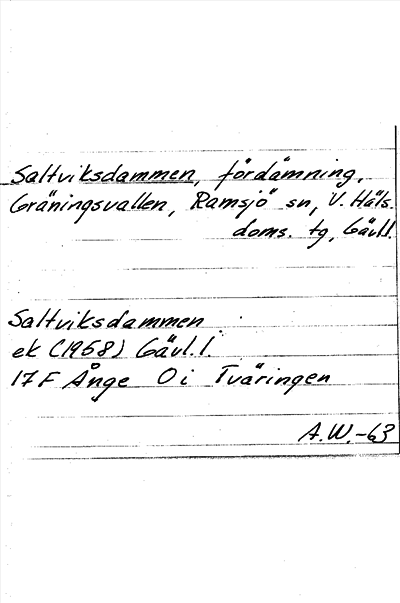 Saltviksdammen, fördämning,
Gräningsvallen, Ramsjö sn, V. Häls.
doms. tg, Gävl.l.
Saltviksdammen
ek (1958) Gävl.l.
17F Ånge O i Tväringen
A.W.-63